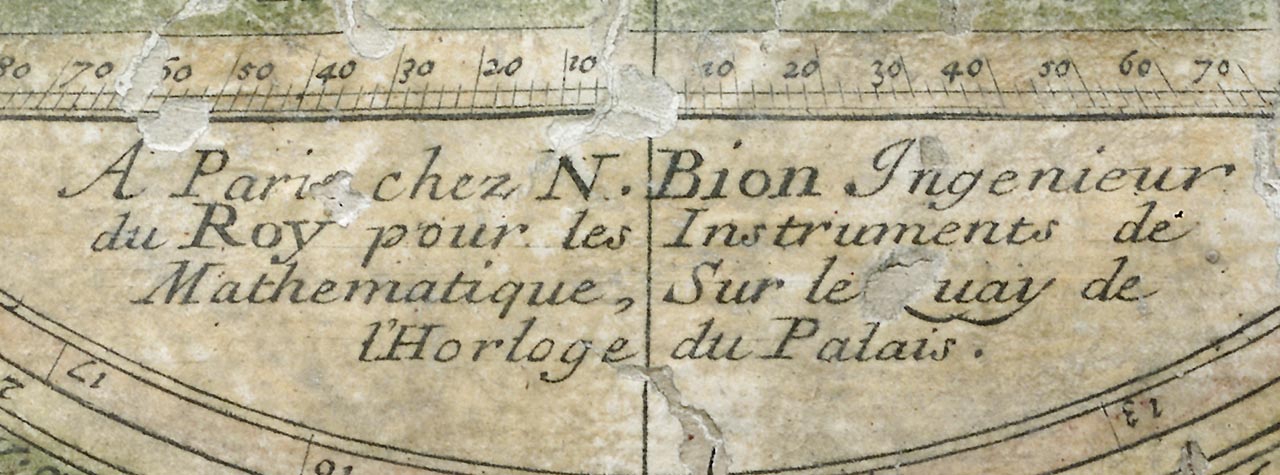 80 70 60 50 40 30 20 10 10 20 30 40 50 60 70
A Paris chez N. Bion Ingenieur
du Roy pour les Instruments de
Mathematique, Sur le Quay de
l'Horloge du Palais.
17 13
18